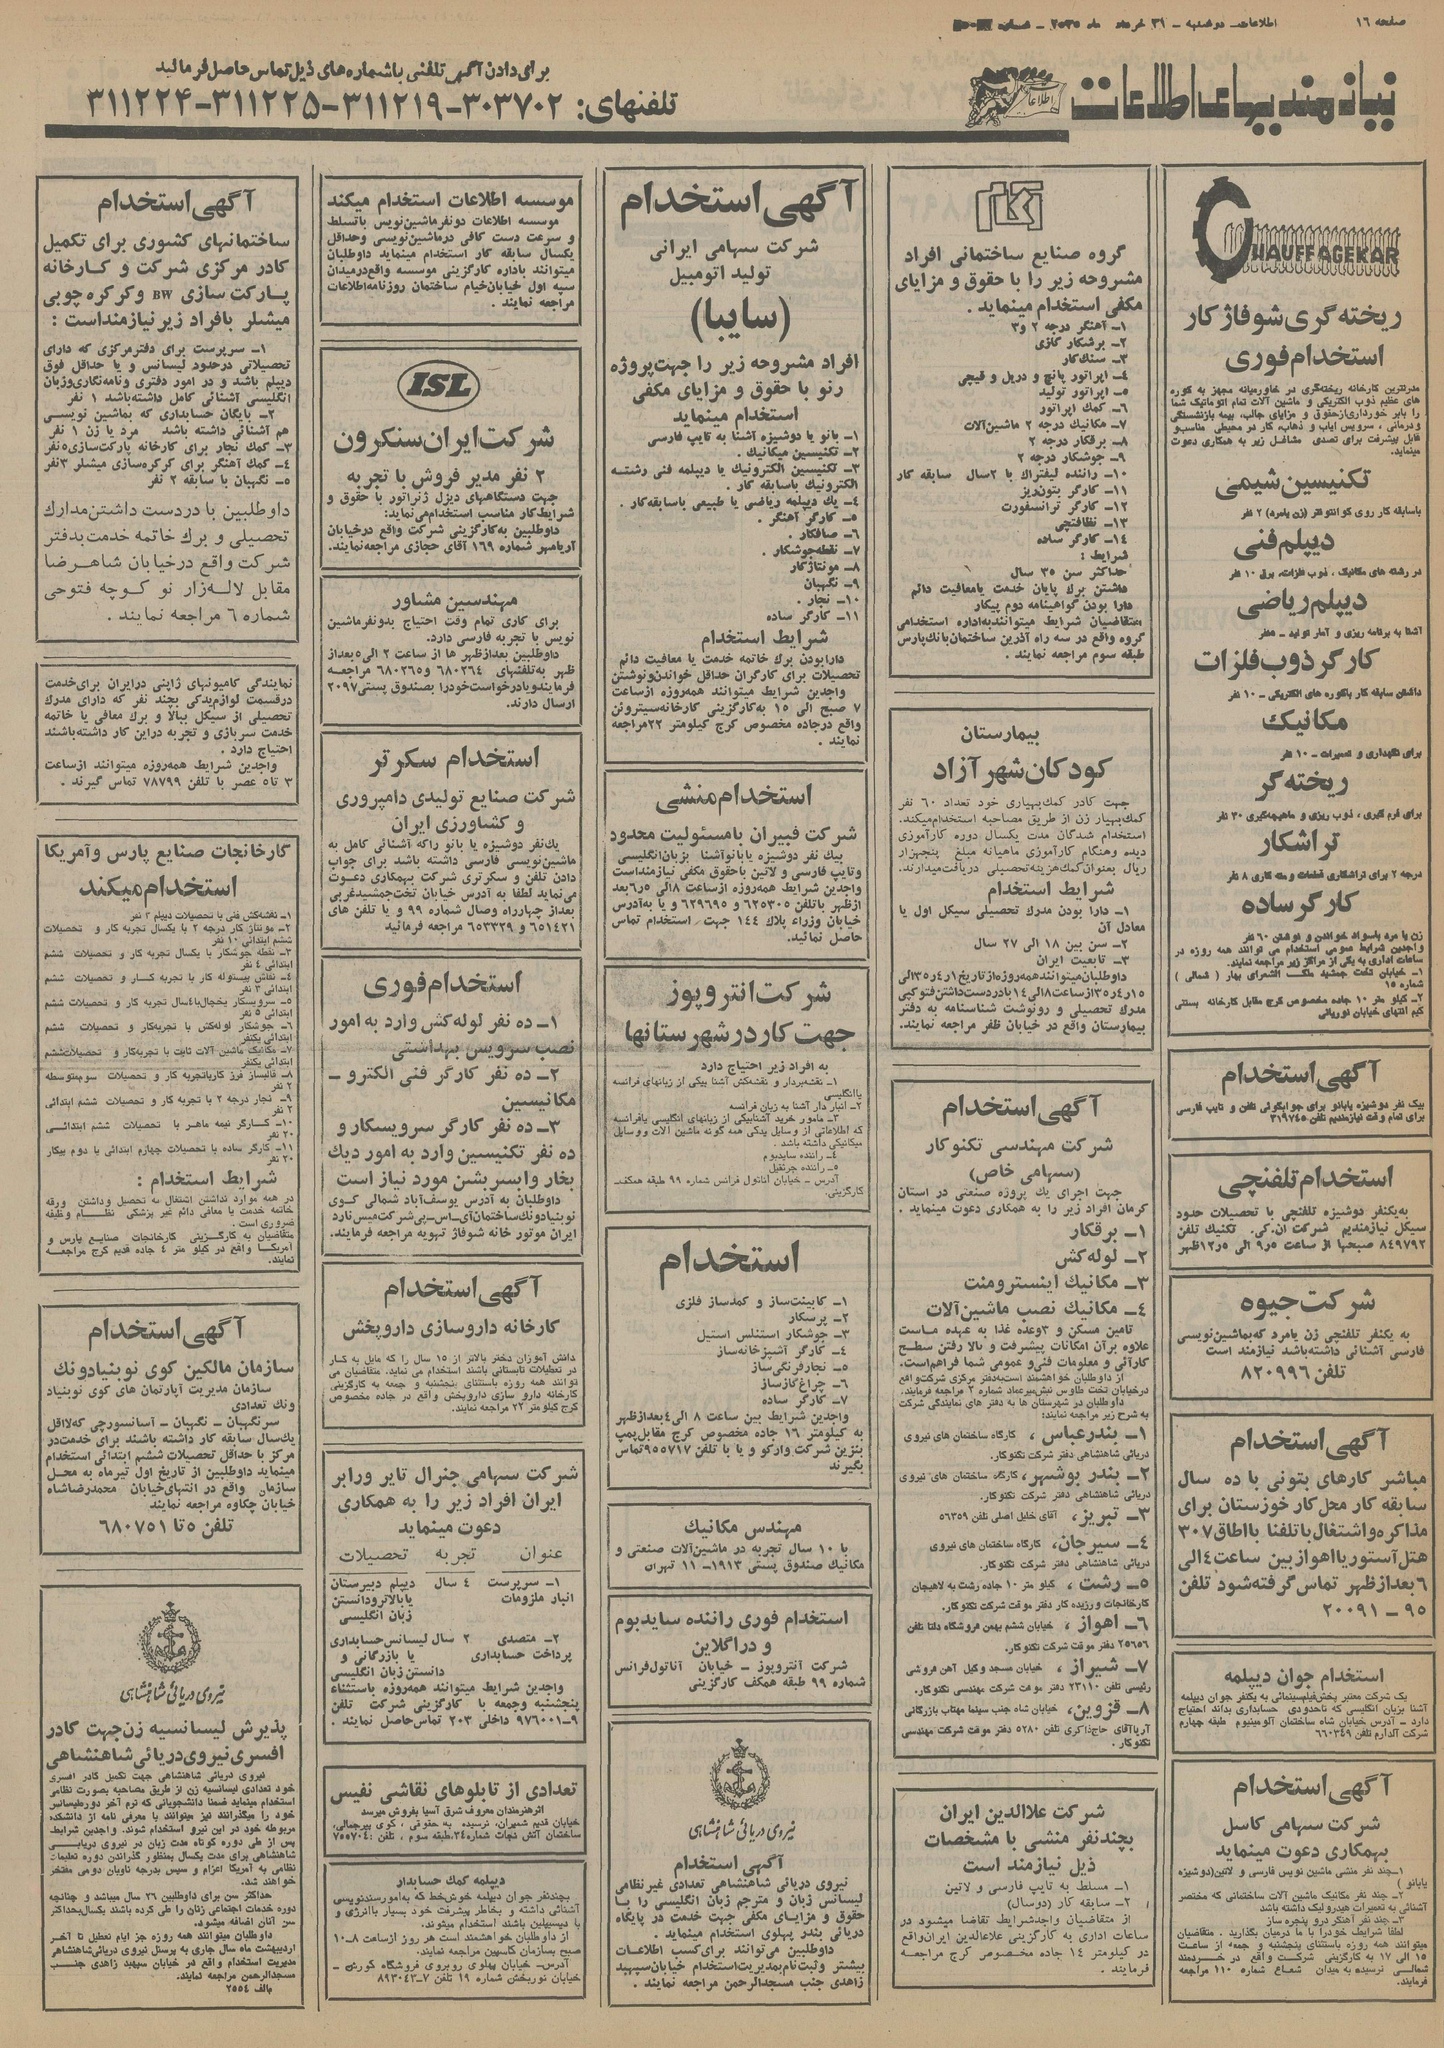 صفحه ۱۶
اطلاعات دوشنبه - ۳۱ خرداد ماه ۲۵۳۵ -
نیازمندیهای اطلاعات
برای دادن آگهی تلفنی باشماره‌های ذیل تماس حاصل فرمائید
تلفنهای: ۳۰۳۷۰۲-۳۱۱۲۱۹-۳۱۱۲۲۵-۳۱۱۲۲۴
CHAUFFAGEKAR
ریخته‌گری شوفاژکار
استخدام فوری
مدرنترین کارخانه ریخته‌گری در خاورمیانه مجهز به کوره
های عظیم ذوب الکتریکی و ماشین آلات تمام اتوماتیک شما
را بابر خورداری‌ازحقوق و مزایای جالب، بیمه بازنشستگی
ودرمانی ، سرویس ایاب و ذهاب، کار در محیطی مناسب‌و
قابل پیشرفت برای تصدی مشاغل زیر به همکاری دعوت
مینماید.
تکنیسین شیمی
باسابقه کار روی کوانتومتر (زن یامرد) ۲ نفر
دیپلم فنی
در رشته های مکانیک ، ذوب فلزات، برق ۱۰ نفر
دیپلم ریاضی
آشنا به برنامه ریزی و آمار تولید -
کارگر ذوب فلزات
داشتن سابقه کار باکوره های الکتریکی - ۱۰ نفر
مکانیک
برای نگهداری و تعمیرات - ۱۰ نفر
ریخته‌گر
برای فرم گیری ، ذوب ریزی و ماهیچه‌گیری ۳۰ نفر
تراشکار
درجه ۲ برای تراشکاری قطعات ومته‌کاری ۸ نفر
کارگر ساده
زن یا مرد باسواد خواندن و نوشتن ۶۰ نفر
واجدین شرایط عمومی استخدام می توانند همه روزه در
ساعات اداری به یکی از مراکز زیر مراجعه نمایند.
۱- خیابان تخت جمشید ملک الشعرای بهار ( شمالی )
شماره ۱۵
۲- کیلو متر ۱۰ جاده مخصوص کرج مقابل کارخانه بستنی
کیم انتهای خیابان نوریانی
آگهی استخدام
بیک نفر دوشیزه یابانو برای جوابگوئی تلفن و تایپ فارسی
برای تمام وقت نیازمندیم تلفن ۳۱۹۷۴۵
استخدام تلفنچی
به‌یکنفر دوشیزه تلفنچی با تحصیلات حدود
سیکل نیازمندیم شرکت ان.کی. تکنیک تلفن
۸۴۹۷۹۲ صبحها از ساعت ۹ر۵ الی ۱۲ر۵ظهر
شرکت جیوه
به یکنفر تلفنچی زن یامرد که‌بماشین‌نویسی
فارسی آشنائی داشته‌باشد نیازمند است
تلفن ۸۲۰۹۹۶
آگهی استخدام
مباشر کارهای بتونی با ده سال
سابقه کار محل کار خوزستان برای
مذاکره‌واشتغال باتلفنا بااطاق ۳۰۷
هتل‌آستوریااهواز بین ساعت ۴الی
۶ بعدازظهر تماس گرفته‌شود تلفن
۹۵ - ۲۰۰۹۱
استخدام جوان دیپلمه
یک شرکت معتبر پخش‌فیلم‌سینمائی به یکنفر جوان دیپلمه
آشنا بزبان انگلیسی که تاحدودی حسابداری بداند احتیاج
دارد - آدرس خیابان شاه ساختمان آلومینیوم طبقه چهارم
شرکت آلدارم تلفن ۶۶۰۳۴۹
آگهی استخدام
شرکت سهامی کاسل
بهمکاری دعوت مینماید
۱-چند نفر منشی ماشین نویس فارسی و لاتین(دوشیزه
یابانو )
۲- چند نفر مکانیک ماشین آلات ساختمانی که مختصر
آشنائی به تعمیرات هیدرولیک داشته باشد
۳-چند نفر آهنگر درو پنجره ساز
لطفا شرایط خودرا با ما درمیان بگذارید . متقاضیان
میتوانند همه روزه باستثنای پنجشنبه و جمعه از ساعت
۱۵ الی ۱۷ به کارگزینی شرکت واقع در خردمند
شمالی نرسیده به میدان شعاع شماره ۱۱۰ مراجعه
فرمایند.
گروه صنایع ساختمانی افراد
مشروحه زیر را با حقوق و مزایای
مکفی استخدام مینماید.
۱- آهنگر درجه ۲ و۳
۲- برشکار گازی
۳- سنگ‌کار
۴- اپراتور پانچ و دریل و قیچی
۵- اپراتور تولید
۶- کمک اپراتور
۷- مکانیک درجه ۲ ماشین‌آلات
۸- برقکار درجه ۲
۹- جوشکار درجه ۲
۱۰- راننده لیفتراک با ۲سال سابقه کار
۱۱- کارگر بتون‌ریز
۱۲- کارگر ترانسفورت
۱۳- نظافتچی
۱۴- کارگر ساده
شرایط :
حداکثر سن ۳۵ سال
داشتن برگ پایان خدمت یامعافیت دائم
دارا بودن گواهینامه دوم پیکار
متقاضیان شرایط میتوانندبه‌اداره استخدامی
گروه واقع در سه راه آذرین ساختمان بانک‌پارس
طبقه سوم مراجعه نمایند .
بیمارستان
کودکان شهر آزاد
جهت کادر کمک‌بهیاری خود تعداد ۶۰ نفر
کمک‌بهیار زن از طریق مصاحبه استخدام‌میکند.
استخدام شدگان مدت یکسال دوره کارآموزی
دیده وهنگام کارآموزی ماهیانه مبلغ پنجهزار
ریال بعنوان کمک‌هزینه‌تحصیلی دریافت‌میدارند.
شرایط استخدام
۱- دارا بودن مدرک تحصیلی سیکل اول یا
معادل آن
۲- سن بین ۱۸ الی ۲۷ سال
۳- تابعیت ایران
داوطلبان‌میتوانندهمه‌روزه‌از تاریخ ۱ر۴ر۳۵الی
۱۵ر۴ر۳۵ازساعت ۸الی ۱۴ بادردست‌داشتن‌فتوکپی
مدرک تحصیلی و رونوشت شناسنامه به دفتر
بیمارستان واقع در خیابان ظفر مراجعه نمایند.
آگهی استخدام
شرکت مهندسی تکنوکار
(سهامی خاص)
جهت اجرای یک پروژه صنعتی در استان
کرمان افراد زیر را به همکاری دعوت مینماید .
۱- برقکار
۲- لوله‌کش
۳- مکانیک اینسترومنت
۴- مکانیک نصب ماشین‌آلات
تامین مسکن و ۳وعده غذا به عهده ماست
علاوه برآن امکانات پیشرفت و بالا رفتن سطح
کارآئی و معلومات فنی‌و عمومی شما فراهم‌است.
از داوطلبان خواهشمند است‌به‌دفتر مرکزی شرکت‌واقع
درخیابان تخت طاوس نبش‌میرعماد شماره ۲ مراجعه فرمایند.
داوطلبان در شهرستان ها به دفتر های نمایندگی شرکت
به شرح زیر مراجعه نمایند؛
۱- بندرعباس، کارگاه ساختمان های نیروی
دریائی شاهنشاهی دفتر شرکت تکنوکار.
۲- بندر بوشهر، کارگاه ساختمان های نیروی
دریائی شاهنشاهی دفتر شرکت تکنوکار.
۳- تبریز، آقای خلیل اصلی تلفن ۵۶۳۵۹
۴- سیرجان، کارگاه ساختمان های نیروی
دریائی شاهنشاهی دفتر شرکت تکنوکار.
۵- رشت ، کیلو متر ۱۰ جاده رشت به لاهیجان
کارخانجات و رزیده کار دفتر موقت شرکت تکنوکار.
۶- اهواز ، خیابان ششم بهمن فروشگاه دلتا تلفن
۲۵۶۵۶ دفتر موقت شرکت تکنوکار.
۷- شیراز ، خیابان مسجد وکیل آهن فروشی
رئیسی تلفن ۲۳۱۱۰ دفتر موقت شرکت مهندسی تکنوکار.
۸- قزوین، خیابان شاه جنب سینما مهتاب بازرگانی
آریاآقای حاج‌ذاکری تلفن ۵۲۸۰ دفتر موقت شرکت مهندسی
تکنوکار .
شرکت علاالدین ایران
بچندنفر منشی با مشخصات
ذیل نیازمند است
۱- مسلط به تایپ فارسی و لاتین
۲- سابقه کار (دوسال)
از متقاضیان واجدشرایط تقاضا میشود در
ساعات اداری به کارگزینی علاءالدین ایران‌واقع
در کیلومتر ۱۴ جاده مخصوص کرج مراجعه
فرمایند .
آگهی استخدام
شرکت سهامی ایرانی
تولید اتومبیل
(سایپا)
افراد مشروحه زیر را جهت پروژه
رنو با حقوق و مزایای مکفی
استخدام مینماید
۱- بانو یا دوشیزه آشنا به تایپ فارسی
۲- تکنسین میکانیک .
۳- تکنسین الکترونیک یا دیپلمه فنی رشته
الکترونیک باسابقه کار .
۴- یک دیپلمه ریاضی یا طبیعی باسابقه‌کار .
۵- کارگر آهنگر .
۶- صافکار .
۷- نقطه‌جوشکار .
۸- مونتاژکار
۹- نگهبان
۱۰- نجار .
۱۱- کارگر ساده
شرایط استخدام
دارابودن برگ خاتمه خدمت یا معافیت دائم
تحصیلات برای کارگران حداقل خواندن‌ونوشتن
واجدین شرایط میتوانند همه‌روزه ازساعت
۷ صبح الی ۱۵ به‌کارگزینی کارخانه‌سیتروئن
واقع درجاده مخصوص کرج کیلومتر ۲۲مراجعه
نمایند .
استخدام منشی
شرکت فبیران بامسئولیت محدود
بیک نفر دوشیزه یابانوآشنا بزبان‌انگلیسی
وتایپ فارسی و لاتین باحقوق مکفی نیازمنداست
واجدین شرایط همه‌روزه ازساعت ۸الی ۶ر۵بعد
ازظهر باتلفن ۶۲۵۳۰۵ و ۶۲۹۶۹۵ و یا به‌آدرس
خیابان وزراء پلاک ۱۴۴ جهت استخدام تماس
حاصل نمائید.
شرکت انتروپوز
جهت کار در شهرستانها
به افراد زیر احتیاج دارد
۱- نقشه‌بردار و نقشه‌کش آشنا بیکی از زبانهای فرانسه
یاانگلیسی
۲- انبار دار آشنا به زبان فرانسه
۳- مامور خرید آشنابیکی از زبانهای انگلیسی یافرانسه
که اطلاعاتی از وسایل یدکی همه گونه ماشین آلات ووسایل
میکانیکی داشته باشد .
۴- راننده سایدبوم
۵- راننده جرثقیل
آدرس - خیابان اناتول فرانس شماره ۹۹ طبقه همکف-
کارگزینی.
استخدام
۱- کابینت‌ساز و کمدساز فلزی
۲- پرسکار
۳- جوشکار استنلس استیل
۴- کارگر آشپزخانه‌ساز
۵- نجارفرنگی‌ساز
۶- چراغ‌گازساز
۷- کارگر ساده
واجدین شرایط بین ساعت ۸ الی ۴بعدازظهر
به کیلومتر ۱۶ جاده مخصوص کرج مقابل‌پمپ
بنزین شرکت وارکو و یا با تلفن ۹۵۵۷۱۷تماس
بگیرند
مهندس مکانیک
با ۱۰ سال تجربه در ماشین‌آلات صنعتی و
مکانیک صندوق پستی ۱۹۱۳- ۱۱ تهران
استخدام فوری راننده سایدبوم
و دراگلاین
شرکت آنتروپوز - خیابان آناتول‌فرانس
شماره ۹۹ طبقه همکف کارگزینی
نیروی دریائی شاهنشاهی
آگهی استخدام
نیروی دریائی شاهنشاهی تعدادی غیرنظامی
لیسانس زبان و مترجم زبان انگلیسی را با
حقوق و مزایای مکفی جهت خدمت در پایگاه
دریائی بندر پهلوی استخدام مینماید .
داوطلبین می‌توانند برای‌کسب اطلاعات
بیشتر وثبت‌نام بمدیریت‌استخدام خیابان‌سپهبد
زاهدی جنب مسجدالرحمن مراجعه نمایند .
موسسه اطلاعات استخدام میکند
موسسه اطلاعات دونفرماشین‌نویس باتسلط
و سرعت دست کافی درماشین‌نویسی وحداقل
یکسال سابقه کار استخدام مینماید داوطلبان
میتوانند باداره کارگزینی موسسه واقع‌درمیدان
سپه اول خیابان‌خیام ساختمان روزنامه‌اطلاعات
مراجعه نمایند .
ISL
شرکت ایران سنکرون
۲ نفر مدیر فروش با تجربه
جهت دستگاههای دیزل ژنراتور با حقوق و
شرایط‌کار مناسب استخدام‌می‌نماید:
داوطلبین به‌کارگزینی شرکت واقع درخیابان
آریامهر شماره ۱۶۹ آقای حجازی مراجعه‌نمایند.
مهندسین مشاور
برای کاری تمام وقت احتیاج بدونفرماشین
نویس با تجربه فارسی دارد.
داوطلبین بعدازظهر ها از ساعت ۲ الی ۵بعداز
ظهر به‌تلفنهای ۶۸۰۲۶۴ و۶۸۰۲۶۵ مراجعه
فرمایندویادرخواست‌خودرا بصندوق پستی ۲۰۹۷
ارسال دارند.
استخدام سکرتر
شرکت صنایع تولیدی دامپروری
و کشاورزی ایران
یک‌نفر دوشیزه یا بانو راکه آشنائی کامل به
ماشین‌نویسی فارسی داشته باشد برای جواب
دادن تلفن و سکرتری شرکت بهمکاری دعوت
می‌نماید لطفا به آدرس خیابان تخت‌جمشیدغربی
بعداز چهارراه وصال شماره ۹۹ و یا تلفن های
۶۵۱۴۲۱ و ۶۵۳۳۲۹ مراجعه فرمائید
استخدام فوری
۱- ده نفر لوله‌کش وارد به امور
نصب سرویس بهداشتی
۲- ده نفر کارگر فنی الکترو -
مکانیسین
۳- ده نفر کارگر سرویسکار و
ده نفر تکنیسین وارد به امور دیک
بخار وابسربشن مورد نیاز است
داوطلبان به آدرس یوسف‌آباد شمالی کوی
نوبنیادونک‌ساختمان‌آی-اس-پی‌شرکت میس‌نارد
ایران موتور خانه شوفاژ تهویه مراجعه فرمایند.
آگهی استخدام
کارخانه داروسازی داروپخش
دانش آموزان دختر بالاتر از ۱۵ سال را که مایل به کار
در تعطیلات تابستانی باشند استخدام می نماید. متقاضیان می
توانند همه روزه باستثنای پنجشنبه و جمعه به کارگزینی
کارخانه دارو سازی داروپخش واقع در جاده مخصوص
کرج کیلومتر ۲۲ مراجعه نمایند.
شرکت سهامی جنرال تایر ورابر
ایران افراد زیر را به همکاری
دعوت مینماید
عنوان تجربه تحصیلات
۱- سرپرست ۴ سال دیپلم دبیرستان
انبار ملزومات یابالاترودانستن
زبان انگلیسی
۲- متصدی ۲ سال لیسانس‌حسابداری
پرداخت حسابداری یا بازرگانی و
دانستن زبان انگلیسی
واجدین شرایط میتوانند همه‌روزه باستثناء
پنجشنبه وجمعه با کارگزینی شرکت تلفن
۹-۹۷۶۰۰۱ داخلی ۲۰۳ تماس‌حاصل نمایند .
تعدادی از تابلوهای نقاشی نفیس
اثرهنرمندان معروف شرق آسیا بفروش میرسد
خیابان قدیم شمیران، نرسیده به حقوقی ، کوی بیرجمالی،
ساختمان آتش نجات شماره۳۴،طبقه سوم ، تلفن :۷۵۵۷۰۴
دیپلمه کمک حسابدار
بچندنفر جوان دیپلمه خوش‌خط که به‌امورسندنویسی
آشنائی داشته و بخاطر پیشرفت خود بسیار باانرژی و
با دیسیپلین باشند استخدام میشوند.
از داوطلبان خواهشمند است هر روز ازساعت ۸-۱۰
صبح بسازمان کاسپین مراجعه نمایند.
آدرس- خیابان پهلوی روبروی فروشگاه کورش -
خیابان نوربخش شماره ۱۹ تلفن ۷-۸۹۳۰۴۳
آگهی استخدام
ساختمانهای کشوری برای تکمیل
کادر مرکزی شرکت و کارخانه
پارکت سازی BW وکرکره چوبی
میشلر بافراد زیر نیازمنداست :
۱- سرپرست برای دفترمرکزی که دارای
تحصیلاتی درحدود لیسانس و یا حداقل فوق
دیپلم باشد و در امور دفتری ونامه‌نگاری‌وزبان
انگلیسی آشنائی کامل داشته‌باشد ۱ نفر
۲- بایگان حسابداری که بماشین نویسی
هم آشنائی داشته باشد مرد یا زن ۱ نفر
۳- کمک نجار برای کارخانه پارکت‌سازی۵نفر
۴- کمک آهنگر برای کرکره‌سازی میشلر ۳نفر
۵- نگهبان با سابقه ۲ نفر
داوطلبین با دردست داشتن‌مدارک
تحصیلی و برگ خاتمه خدمت بدفتر
شرکت واقع درخیابان شاهرضا
مقابل لاله‌زار نو کوچه فتوحی
شماره ۶ مراجعه نمایند .
نمایندگی کامیونهای ژاپنی درایران برای‌خدمت
درقسمت لوازم‌یدکی بچند نفر که دارای مدرک
تحصیلی از سیکل ببالا و برگ معافی یا خاتمه
خدمت سربازی و تجربه دراین کار داشته‌باشند
احتیاج دارد .
واجدین شرایط همه‌روزه میتوانند ازساعت
۳ تا۵ عصر با تلفن ۷۸۷۹۹ تماس گیرند .
کارخانجات صنایع پارس وآمریکا
استخدام میکند
۱- نقشه‌کش فنی با تحصیلات دیپلم ۲ نفر
۲- مونتاژ کار درجه ۲ با یکسال تجربه کار و تحصیلات
ششم ابتدائی ۱۰ نفر
۳- نقطه جوشکار با یکسال تجربه کار و تحصیلات ششم
ابتدائی ۴ نفر
۴- نقاش پیستوله کار با تجربه کار و تحصیلات ششم
ابتدائی ۳ نفر
۵- سرویسکار یخچال‌با۴سال تجربه کار و تحصیلات ششم
ابتدائی ۵ نفر
۶- جوشکار لوله‌کش با تجربه‌کار و تحصیلات ششم
ابتدائی یکنفر
۷- مکانیک ماشین آلات ثابت با تجربه‌کار و تحصیلات‌ششم
ابتدائی یکنفر
۸- قالبساز فرز کارباتجربه کار و تحصیلات سوم‌متوسطه
۲ نفر
۹- نجار درجه ۲ با تجربه کار و تحصیلات ششم ابتدائی
۲ نفر
۱۰- کارگر نیمه ماهر با تحصیلات ششم ابتدائی
۲۰ نفر
۱۱- کارگر ساده با تحصیلات چهارم ابتدائی یا دوم پیکار
۲۰ نفر
شرایط استخدام :
در همه موارد نداشتن اشتغال به تحصیل و داشتن ورقه
خاتمه خدمت یا معافی دائم غیر پزشکی نظام وظیفه
ضروری است .
متقاضیان به کارگزینی کارخانجات صنایع پارس و
آمریکا واقع در کیلو متر ۴ جاده قدیم کرج مراجعه
نمایند.
آگهی استخدام
سازمان مالکین کوی نوبنیادونک
سازمان مدیریت آپارتمان های کوی نوبنیاد
ونک تعدادی
سرنگهبان - نگهبان - آسانسورچی که‌لااقل
یک‌سال سابقه کار داشته باشند برای خدمت‌در
مرکز با حداقل تحصیلات ششم ابتدائی استخدام
مینماید داوطلبین از تاریخ اول تیرماه به محل
سازمان واقع در انتهای‌خیابان محمدرضاشاه
خیابان چکاوه مراجعه نمایند
تلفن ۵ تا ۶۸۰۷۵۱
نیروی دریائی شاهنشاهی
پذیرش لیسانسیه زن جهت کادر
افسری نیروی دریائی شاهنشاهی
نیروی دریائی شاهنشاهی جهت تکمیل کادر افسری
خود تعدادی لیسانسیه زن از طریق مصاحبه بصورت نظامی
استخدام مینماید ضمنا دانشجویانی که ترم آخر دوره‌لیسانس
خود را میگذرانند نیز میتوانند با معرفی نامه از دانشکده
مربوطه خود در این نیرو استخدام شوند. واجدین شرایط
پس از طی دوره کوتاه مدت زبان در نیروی دریایی
شاهنشاهی برای مدت یکسال بمنظور گذراندن دوره تعلیمات
نظامی به آمریکا اعزام و سپس بدرجه ناوبان دومی مفتخر
خواهند شد.
حداکثر سن برای داوطلبین ۲۶ سال میباشد و چنانچه
دوره خدمات اجتماعی زنان را طی کرده باشند یکسال‌بحداکثر
سن آنان اضافه میشود.
داوطلبان میتوانند همه روزه جز ایام تعطیل تا آخر
اردیبهشت ماه سال جاری به پرسنل نیروی دریائی‌شاهنشاهی
مدیریت استخدام واقع در خیابان سپهبد زاهدی جنب
مسجدالرحمن مراجعه نمایند.
م‌الف ۲۵۵۴